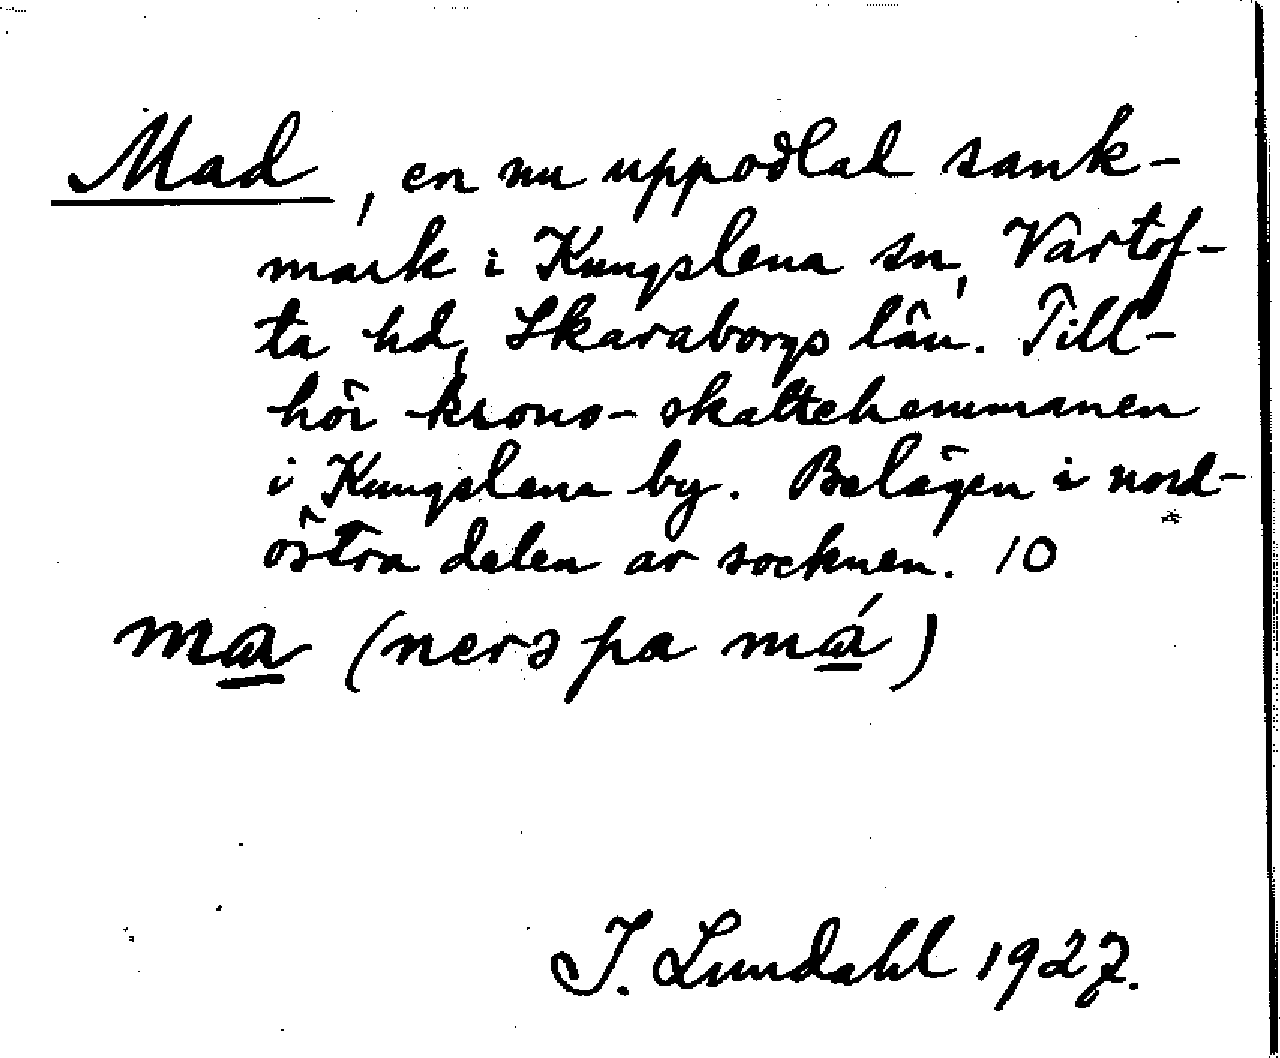 Mad, en nu uppodlad sank-
mark i Kungslena sn, Vartof-
ta hd, Skaraborgs län. Till-
hör krono-skattehemmanen
i Kungslena by. Belägen i nord-
östra delen av socknen. 10
ma (nerə pa má)
I. Lundahl 1927.